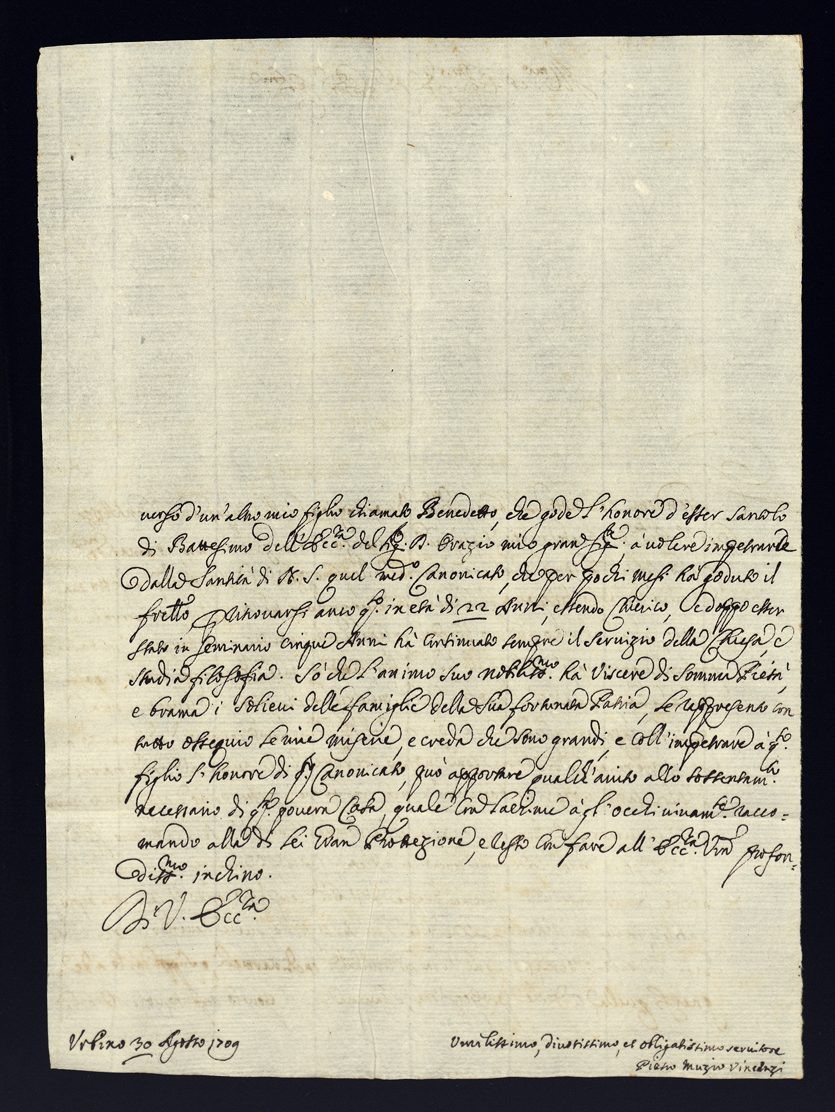 verso d'un'altro mio figlio chiamato Benedetto, che gode l'honore d'esser Santolo
di Battesimo dell'Ecc.za del Sig. D. Orazio mio gran Sig.re à volere impetrarle
dalla Santità di N. S. quel med.o Canonicato, che per pochi mesi hà goduto il
frello, ritrovarsi anco q.to in età di 22 Anni, essendo Chierico, e doppo esser
stato in Seminario cinque Anni hà continuato sempre il servizio della Chiesa, e
studia filosofia. Sò che l'animo suo nobiliss.mo hà viscere di somma Pietà,
e brama i solievi delle famiglie della Sua fortunata Patria, Le rappresento con
tutto ossequio le mie miserie, e creda che sono grandi, e coll'impetrare à q.to
figlio l'honore di Canonicato, può apportare qualch'aiuto allo sostentam.to
necessario di q.ta povera Casa, quale con lacrime à gl'occhi vivam.te racco-
mando alla di Lei Gran Protezzione, e resto con fare all'Ecc.za Vra profon-
diss.mo inchino.
Di V. Ecc.za
Urbino 30 Agosto 1709
Umilissimo, divotissimo, et obligatissimo servitore
Pietro Muzio Vincenzi